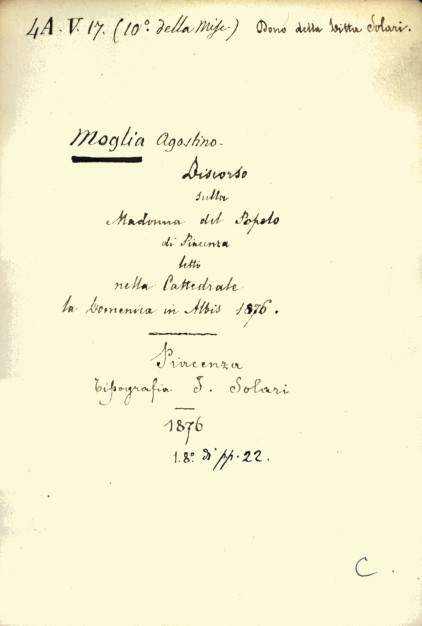 4A. V. 17. (10º. della Misc.) Dono della Ditta Solari.
Moglia Agostino.
Discorso
sulla
Madonna del Popolo
di Piacenza
letto
nella Cattedrale
la Domenica in Albis 1876.
Piacenza
Tipografia F. Solari
1876
1. 8º di pp. 22.
C.